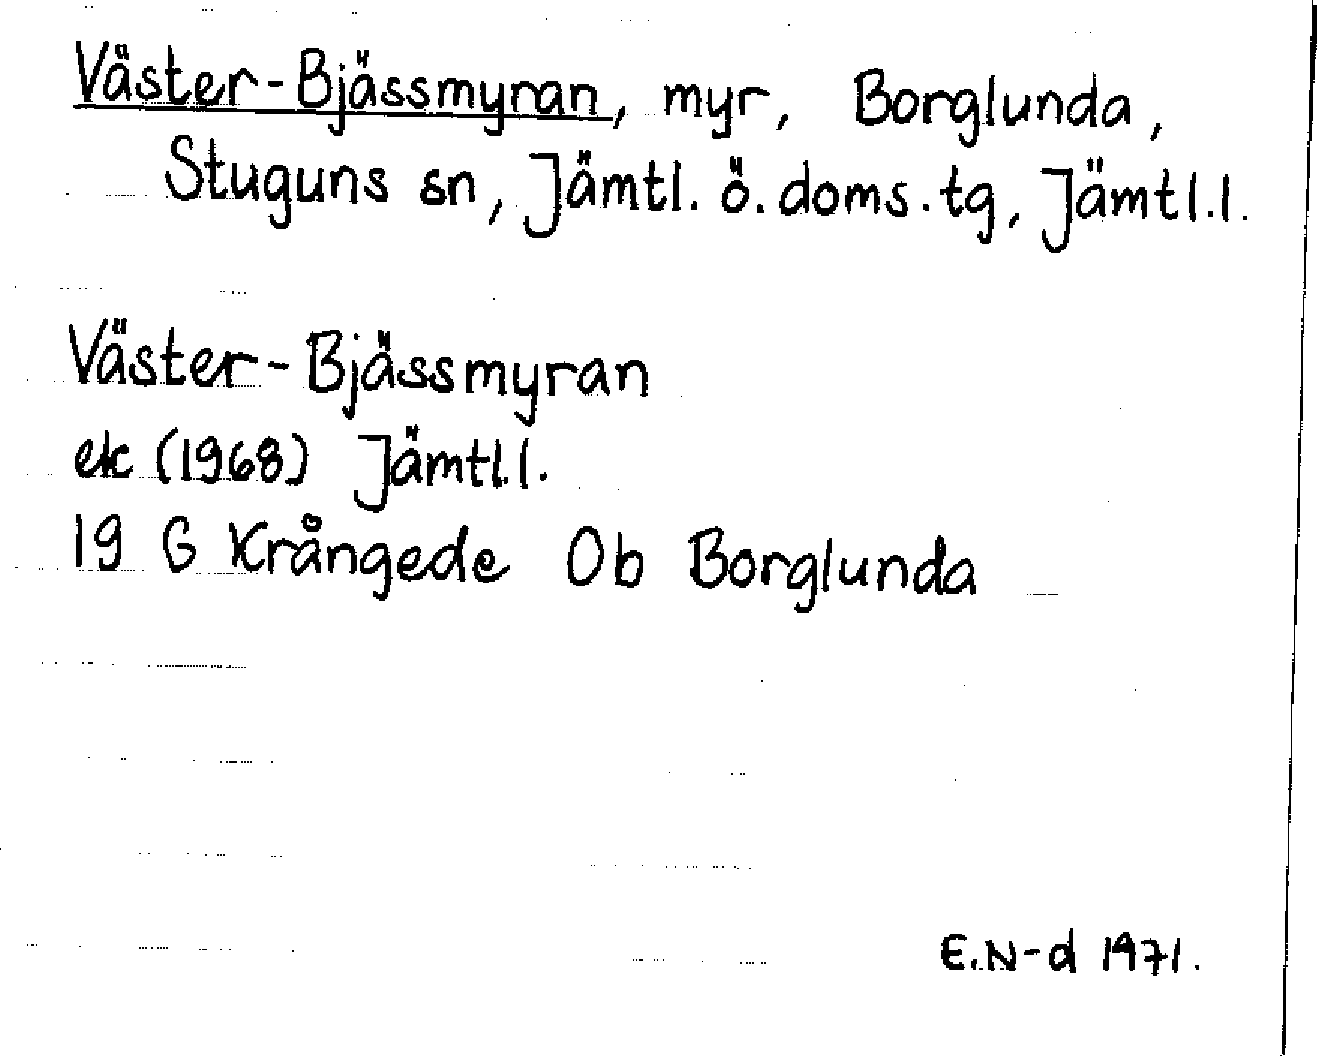 Väster-Bjässmyran, myr, Borglunda,
Stuguns sn, Jämtl. ö. doms.tg, Jämtl.l.
Väster-Bjässmyran
ek (1968) Jämtl.l.
19 G Krångede Ob Borglunda
E.N-d 1971.